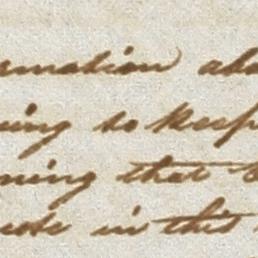 rmation abo
ing to keep
ning that
in this